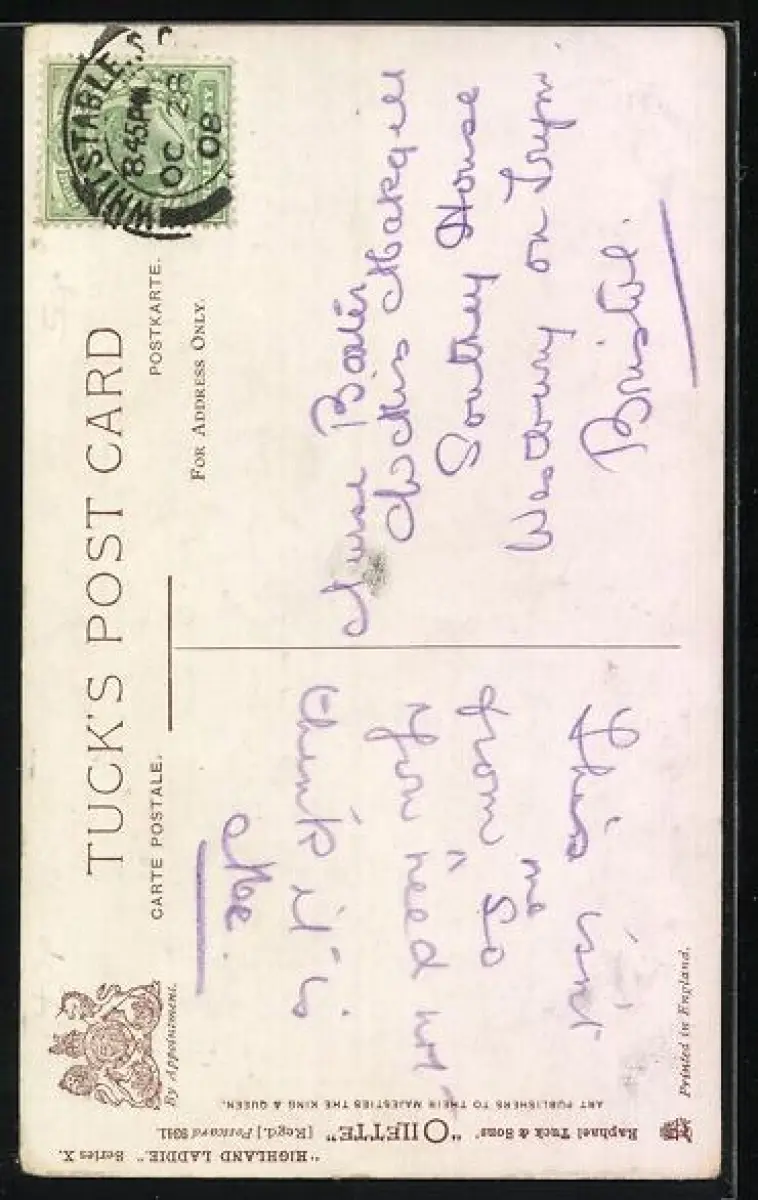 TUCK'S POST CARD
CARTE POSTALE.
POSTKARTE.
FOR ADDRESS ONLY.
By Appointment.
WHITSTABLE
8.45PM
OC 28
08
Nurse
c/o Miss Makgill
Southey House
Westbury on Trym.
Bristol.
This isn't
from ^ me So
You need not
think it is
Me.
"HIGHLAND LADDIE." Series X.
Raphael Tuck & Sons' "OILETTE" [Regd.] Postcard 9341.
ART PUBLISHERS TO THEIR MAJESTIES THE KING & QUEEN.
Printed in England.